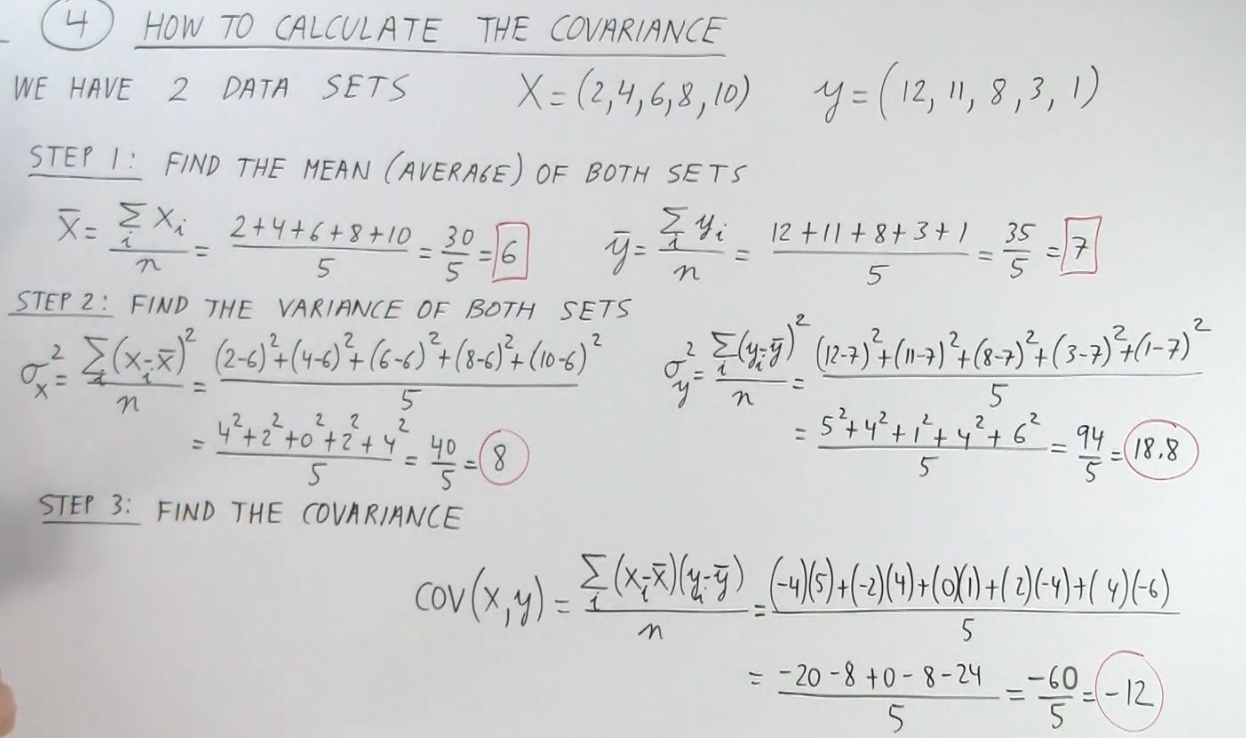 4 HOW TO CALCULATE THE COVARIANCE
WE HAVE 2 DATA SETS X = (2,4,6,8,10) y = (12, 11, 8, 3, 1)
STEP 1: FIND THE MEAN (AVERAGE) OF BOTH SETS
x̄ = Σᵢ xᵢ / n = (2+4+6+8+10) / 5 = 30/5 = 6 ȳ = Σᵢ yᵢ / n = (12+11+8+3+1) / 5 = 35/5 = 7
STEP 2: FIND THE VARIANCE OF BOTH SETS
σₓ² = Σᵢ(xᵢ-x̄)² / n = ((2-6)²+(4-6)²+(6-6)²+(8-6)²+(10-6)²) / 5 σᵧ² = Σᵢ(yᵢ-ȳ)² / n = ((12-7)²+(11-7)²+(8-7)²+(3-7)²+(1-7)²) / 5
= (4²+2²+0²+2²+4²) / 5 = 40/5 = 8 = (5²+4²+1²+4²+6²) / 5 = 94/5 = 18.8
STEP 3: FIND THE COVARIANCE
COV(x,y) = Σᵢ(xᵢ-x̄)(yᵢ-ȳ) / n = ((-4)(5)+(-2)(4)+(0)(1)+(2)(-4)+(4)(-6)) / 5
= (-20-8+0-8-24) / 5 = -60/5 = -12